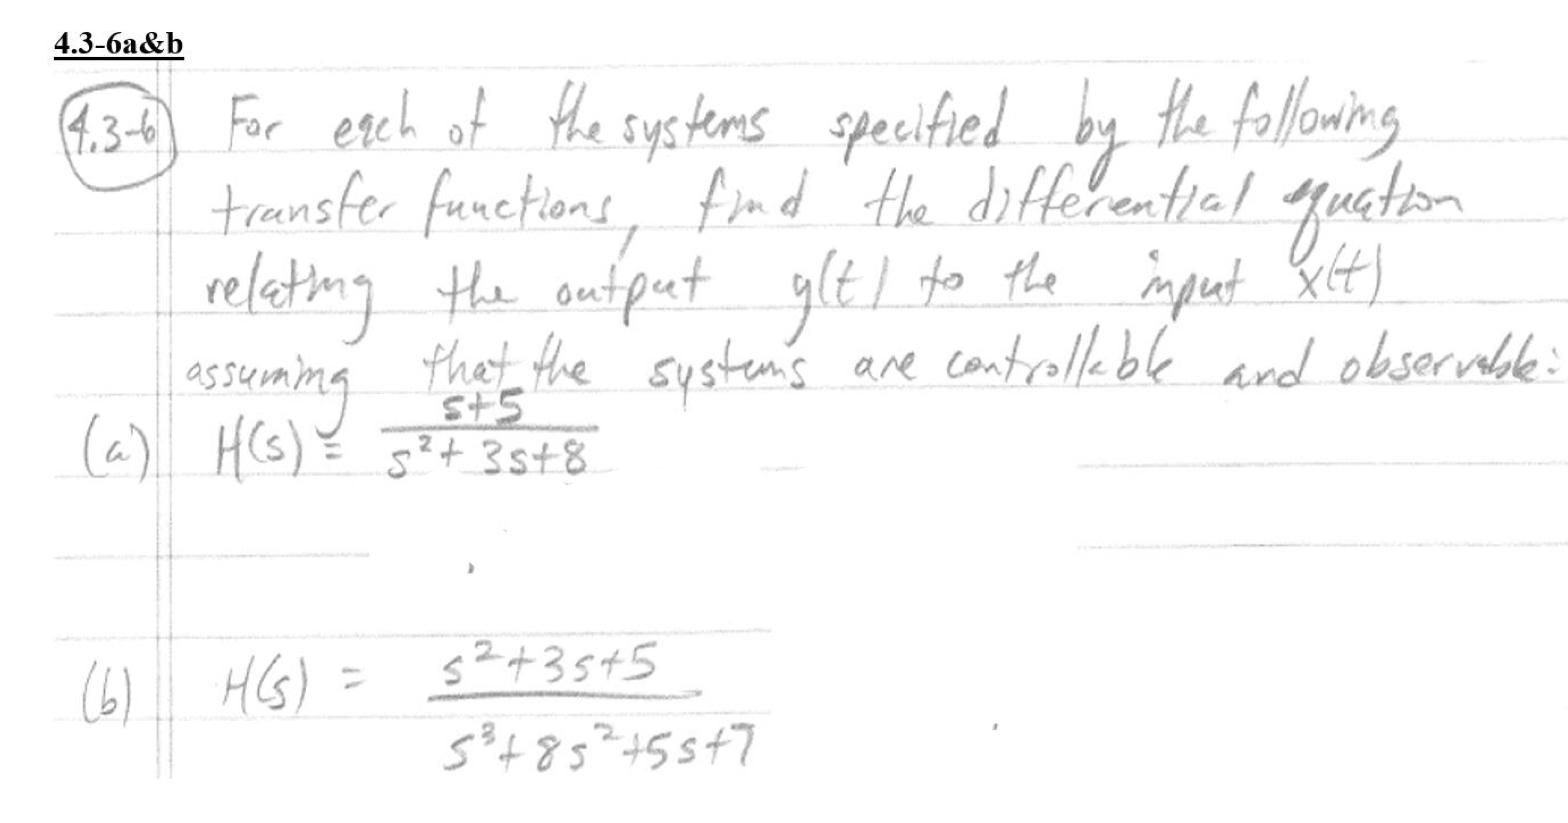 4.3-6a&b
4.3-6 For each of the systems specified by the following
transfer functions, find the differential equation
relating the output y(t) to the input x(t)
assuming that the systems are controllable and observable:
(a) H(s) = s+5 / s²+3s+8
(b) H(s) = s²+3s+5 / s³+8s²+5s+7